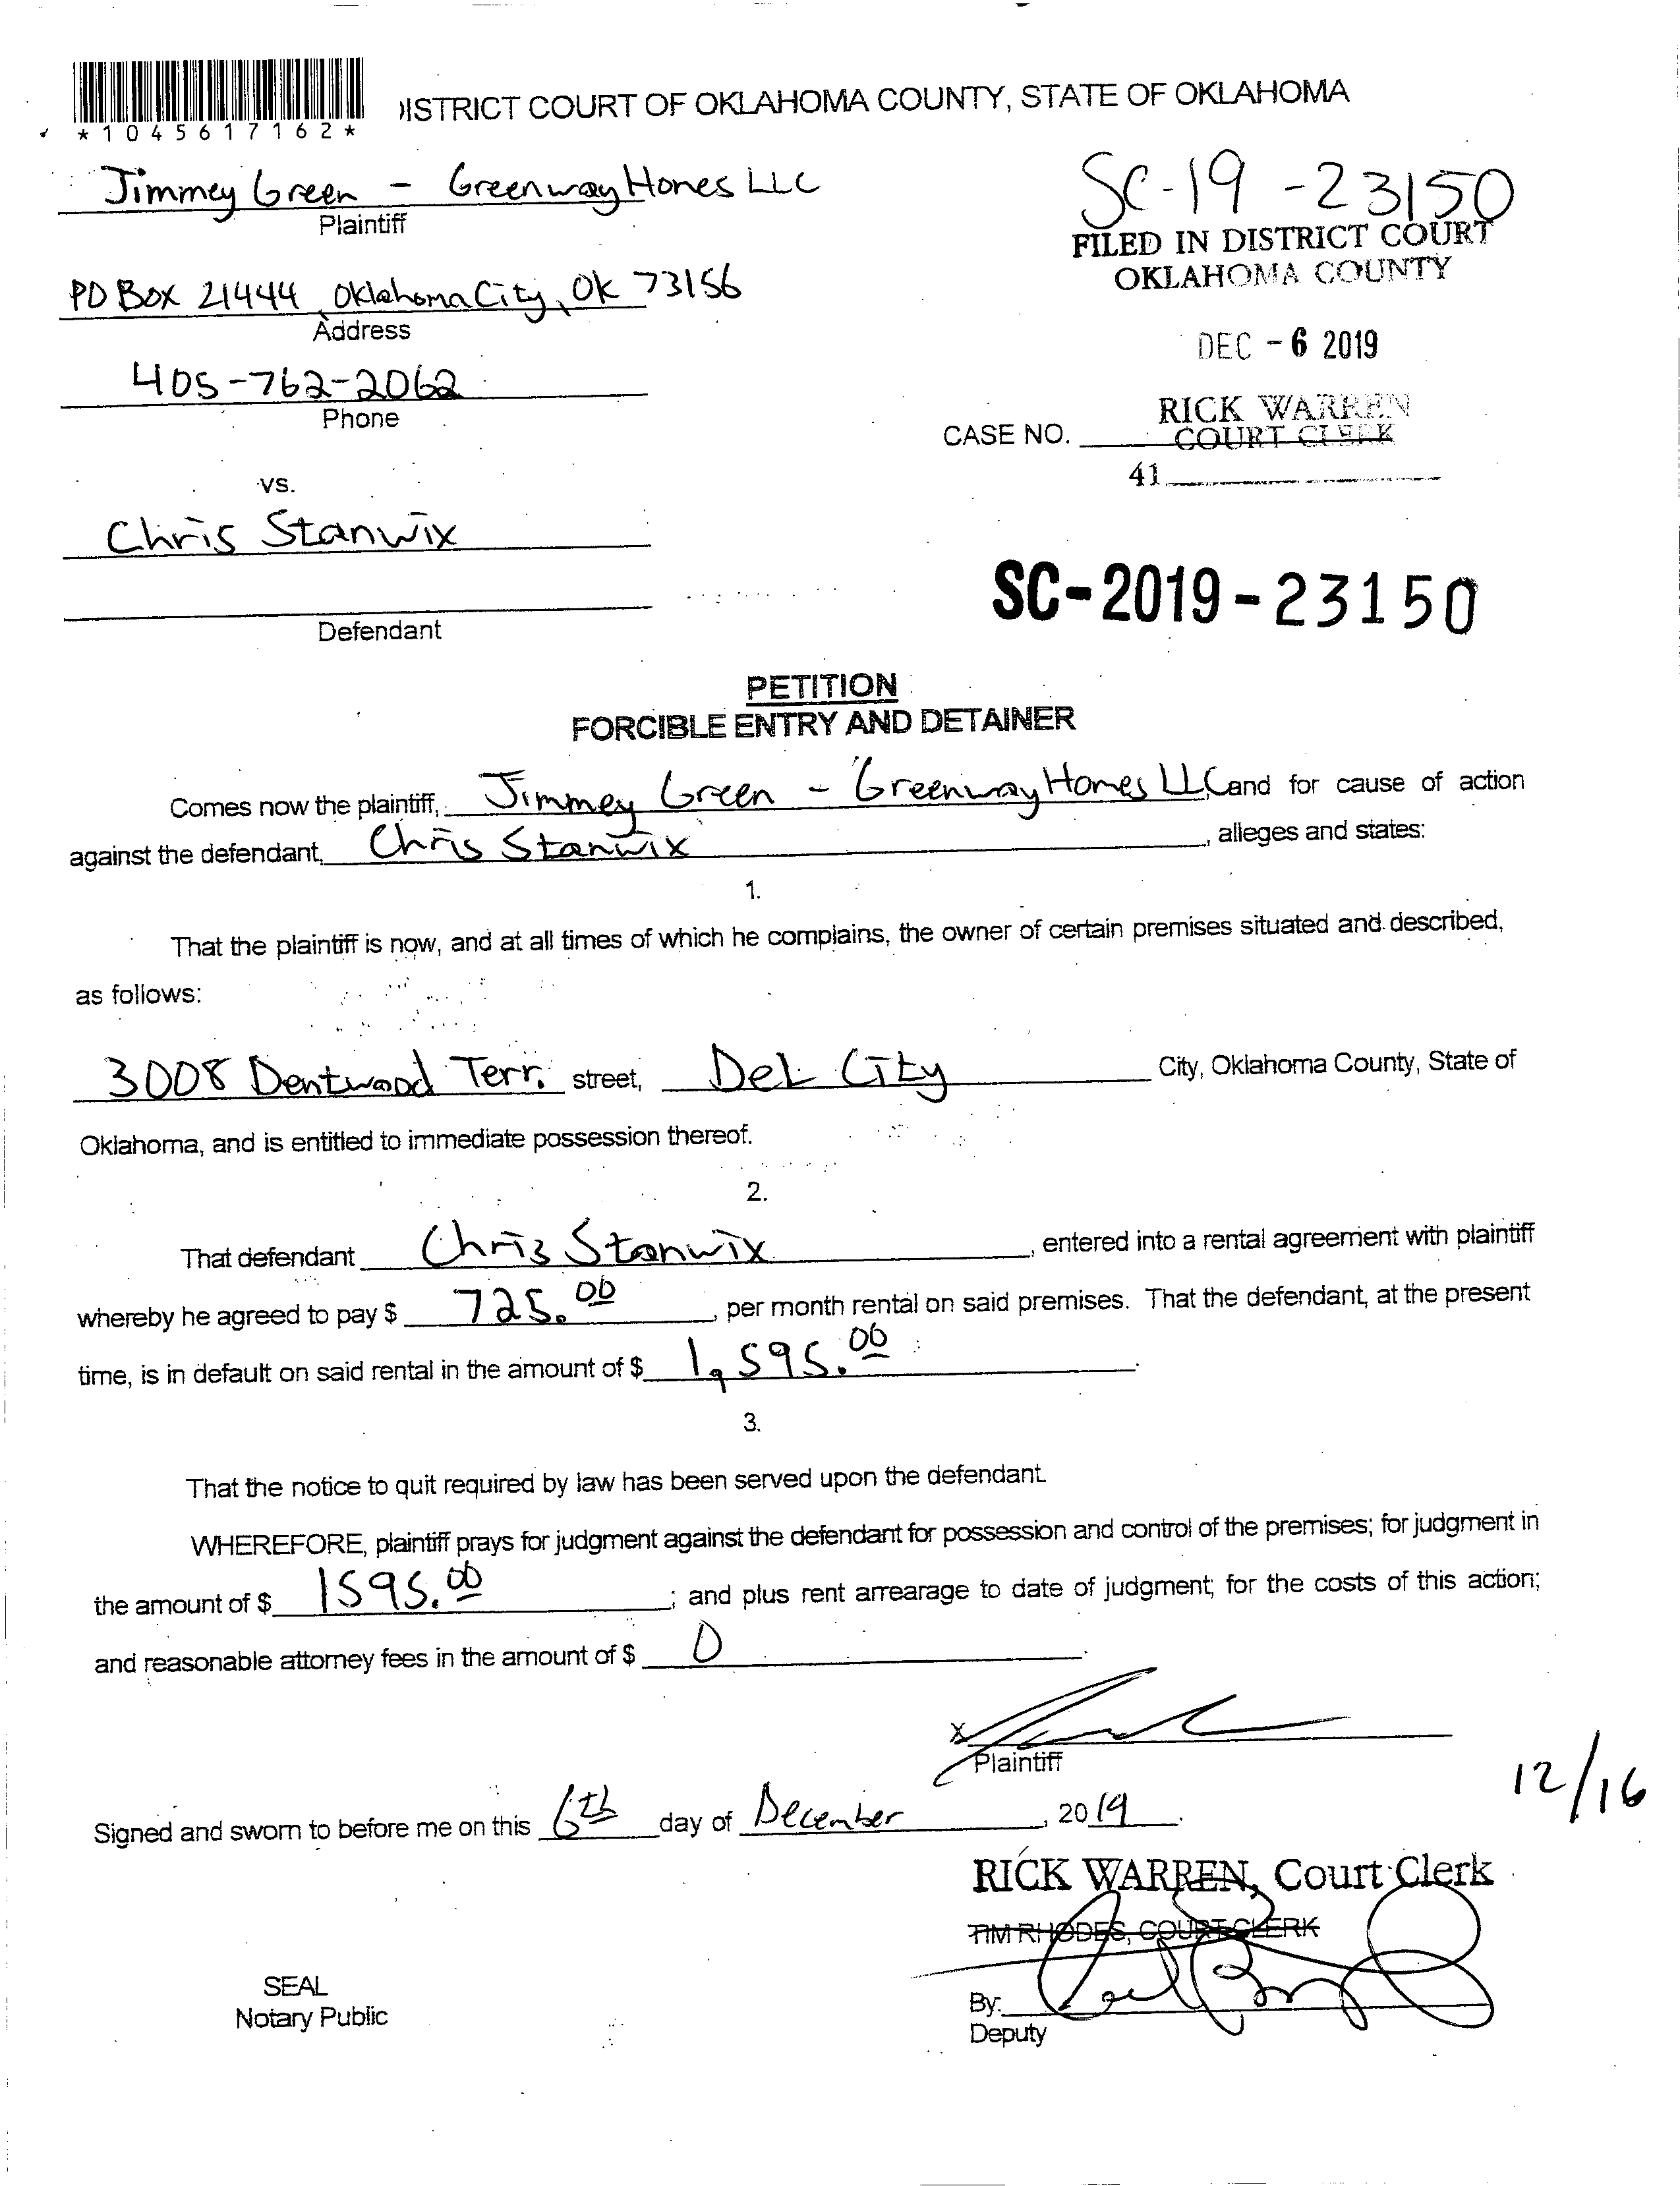 *1045617162*
DISTRICT COURT OF OKLAHOMA COUNTY, STATE OF OKLAHOMA
Jimmey Green - Greenway Homes LLC
Plaintiff
SC-19-23150
FILED IN DISTRICT COURT
OKLAHOMA COUNTY
PO Box 21444 Oklahoma City, OK 73156
Address
DEC -6 2019
405-762-2062
Phone
RICK WARREN
COURT CLERK
CASE NO.
41
vs.
Chris Stanwix
Defendant
SC-2019-23150
PETITION
FORCIBLE ENTRY AND DETAINER
Comes now the plaintiff, Jimmey Green - Greenway Homes LLC, and for cause of action
against the defendant, Chris Stanwix, alleges and states:
1.
That the plaintiff is now, and at all times of which he complains, the owner of certain premises situated and described,
as follows:
3008 Dentwood Terr. street, Del City City, Oklahoma County, State of
Oklahoma, and is entitled to immediate possession thereof.
2.
That defendant Chris Stanwix, entered into a rental agreement with plaintiff
whereby he agreed to pay $ 725.00, per month rental on said premises. That the defendant, at the present
time, is in default on said rental in the amount of $ 1,595.00.
3.
That the notice to quit required by law has been served upon the defendant.
WHEREFORE, plaintiff prays for judgment against the defendant for possession and control of the premises; for judgment in
the amount of $ 1595.00; and plus rent arrearage to date of judgment; for the costs of this action;
and reasonable attorney fees in the amount of $ 0.
X
Plaintiff
12/16
Signed and sworn to before me on this 6th day of December, 2019.
RICK WARREN, Court Clerk
TIM RHODES, COURT CLERK
SEAL
Notary Public
By:
Deputy